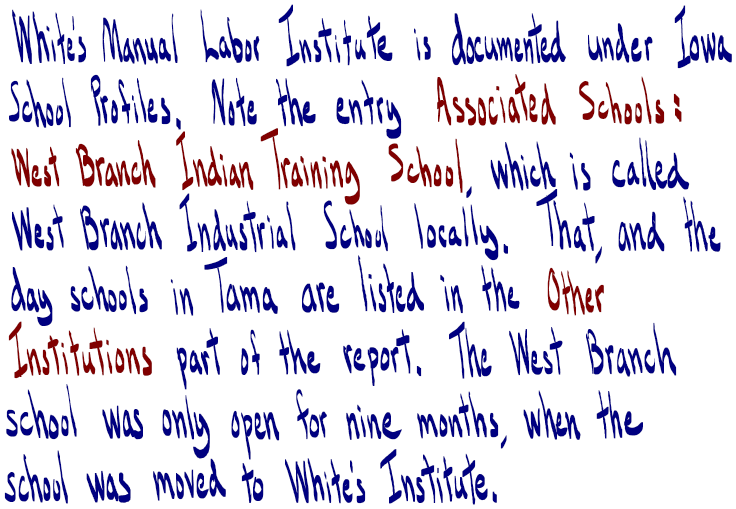 White's Manual Labor Institute is documented under Iowa
School Profiles. Note the entry Associated Schools:
West Branch Indian Training School, which is called
West Branch Industrial School locally. That, and the
day schools in Tama are listed in the Other
Institutions part of the report. The West Branch
school was only open for nine months, when the
school was moved to White's Institute.